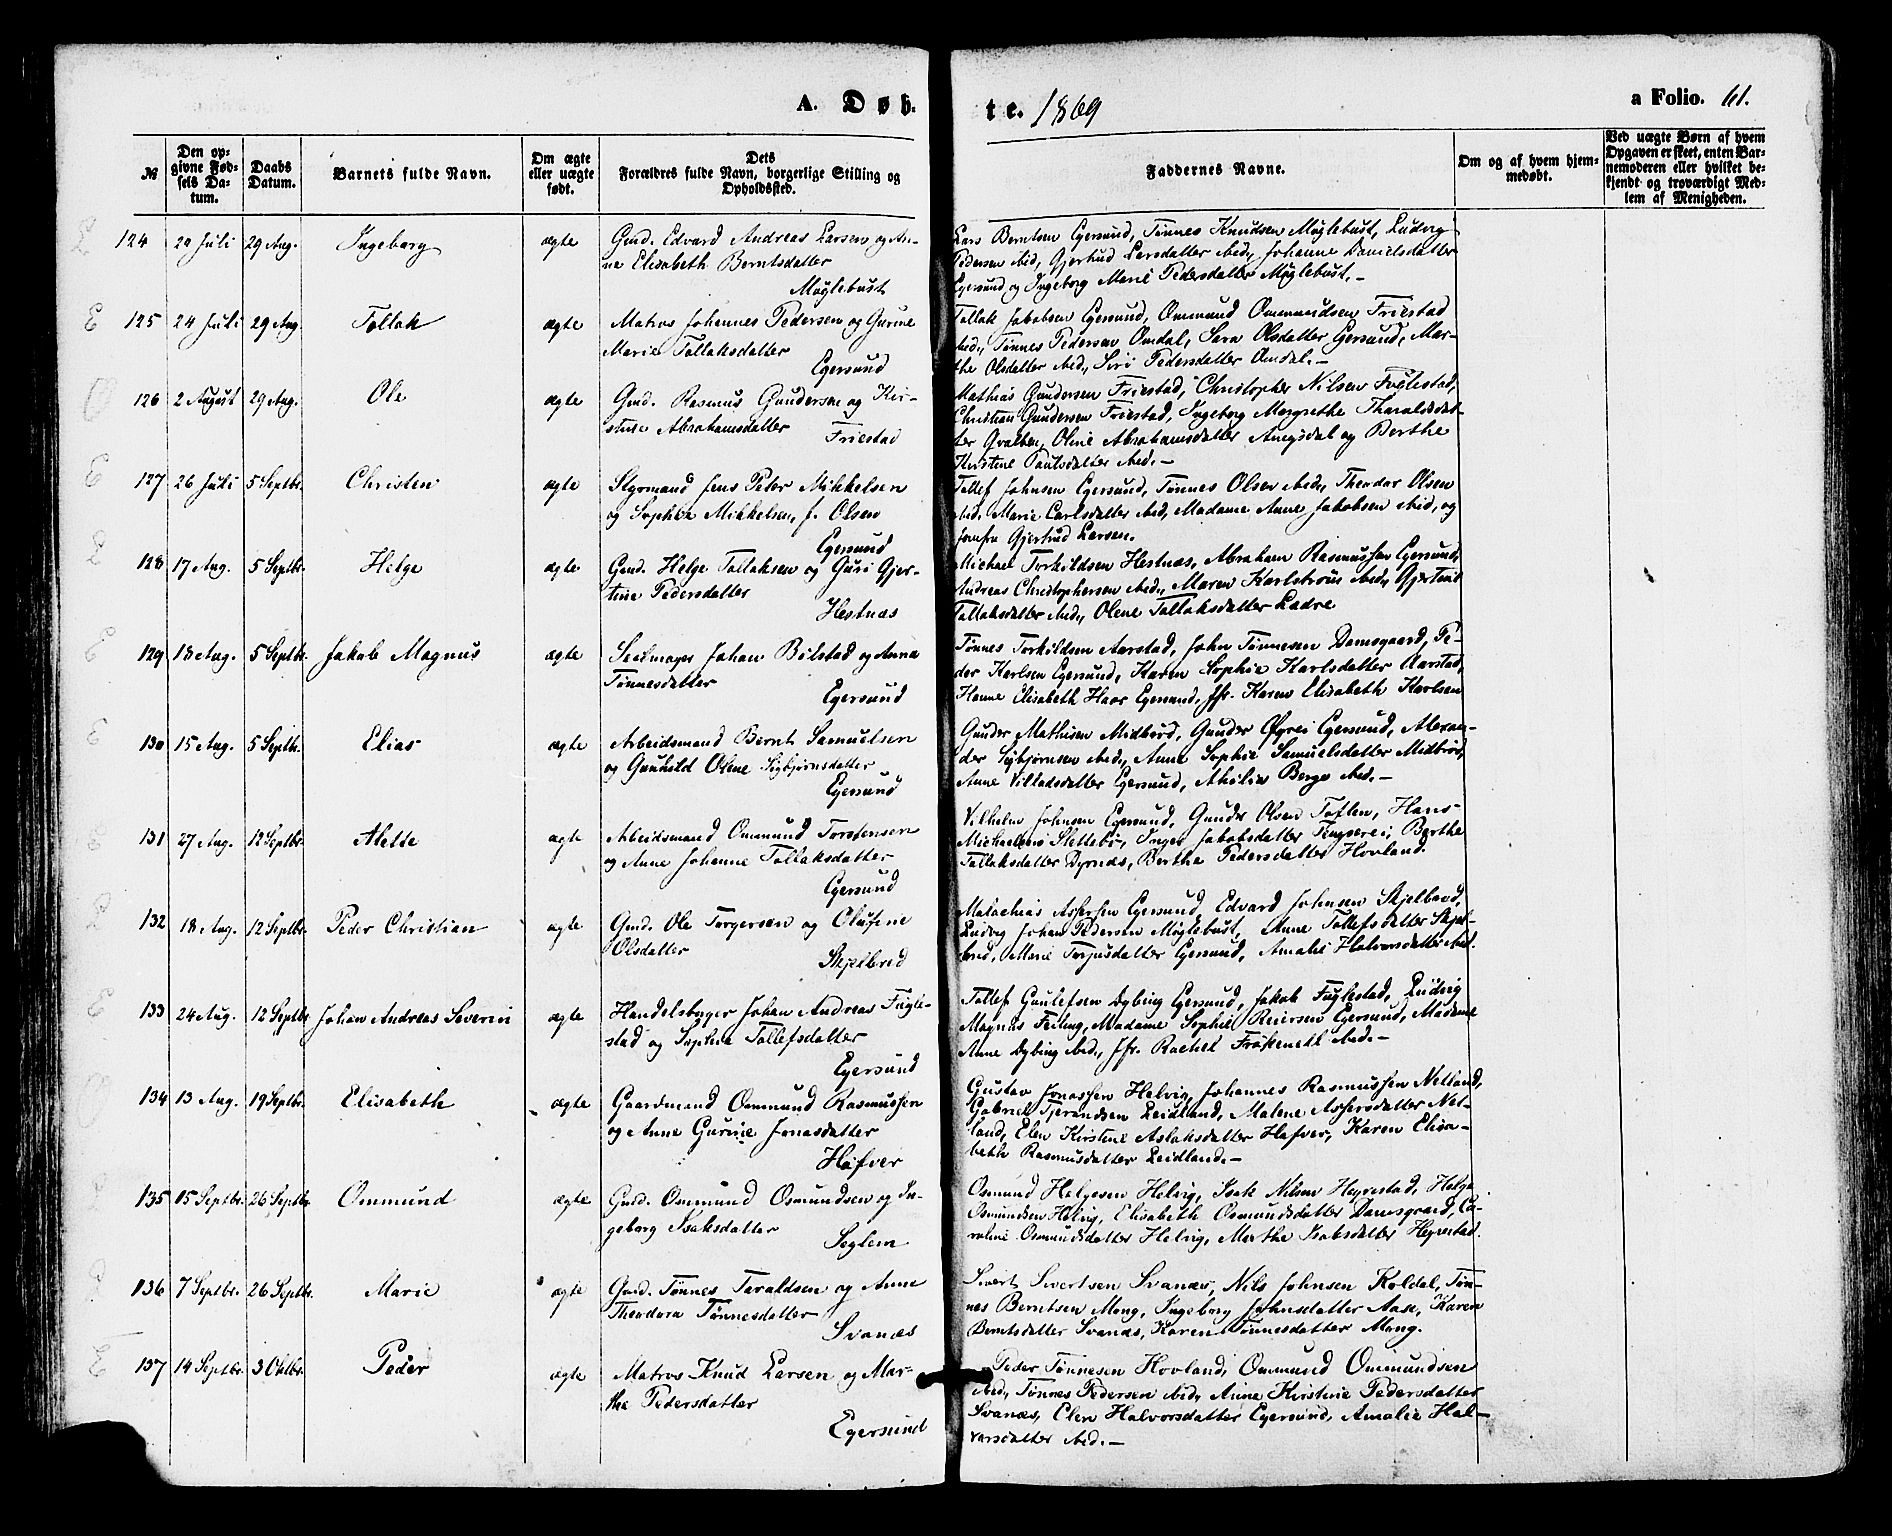 A. Døb-
te. 1869
a Folio. 61.
№
Den op-
givne Fød-
sels Da-
tum.
Daabs
Datum.
Barnets fulde Navn.
Om ægte
eller uægte
født.
Dets
Forældres fulde Navn, borgerlige Stilling og
Opholdssted.
Faddernes Navne.
Om og af hvem hjem-
medøbt.
Ved uægte Børn af hvem
Opgaven er skeet, enten Bar-
nemoderen eller hvilket be-
kjendt og troværdigt Med-
lem af Menigheden.
124 Juli 29 Aug. Ingeborg ægte Gmd. Edvard Andreas Larsen og An-
ne Elisabeth Berntsdatter
Møglebust
Lars Berntsen Egersund, Tønnes Knudsen Møglebust, Ludvig
Pedersen ibid, Gjertrud Larsdatter ibid., Johanne Danielsdatter
Egersund og Ingeborg Marie Pedersdatter Møglebust.-
125 24 Juli 29 Aug. Tollak ægte Matros Johannes Pedersen og Gurine
Marie Tollaksdatter
Egersund
Tollak Jakobsen Egersund, Ommund Ommundsen Friestad
ibid., Tønnes Pedersen Omdal, Sara Olsdatter Egersund, Mar-
the Olsdatter ibid., Siri Pedersdatter Omdal.-
126 2 August 29 Aug. Ole ægte Gmd. Rasmus Gundersen og Kir-
stine Abrahamsdatter
Friestad
Mathias Gundersen Friestad, Christopher Nilsen Fuglestad,
Christian Gundersen Friestad, Ingeborg Margrethe Tharaldsdat-
ter Olene Abrahamsdatter og Berthe
Kirstine Paulsdatter ibid.-
127 26 Juli 5 Septbr. Christen ægte Styrmand Jens Peter Mikkelsen
og Sophia Mikkelsen, f. Olsen
Egersund
Tollef Johnsen Egersund, Tønnes Olsen ibid., Theodor Olsen
ibid., Marie Carlsdatter ibid., Madame Anne Jakobsen ibid, og
Jomfru Gjertrud Larsen.
128 17 Aug. 5 Septbr. Helge ægte Gmd. Helge Tollaksen og Guri Gjer-
tine Pedersdatter
Hestnæs
Michael Torkildsen Hestnæs, Abraham Rasmussen Egersund,
Andreas Christophersen ibid., Maren Karlstrøm ibid., Gjertine
Tollaksdatter ibid., Olene Tollaksdatter Ladre
129 13 Aug. 5 Septbr. Jakob Magnus ægte Seilmager Johan Bilstad og Anna
Tønnesdatter
Egersund
Tønnes Torkildsen Aarstad, John Tønnesen Damsgaard, Pe-
der Karlsen Egersund, Karen Sophie Karlsdatter Aarstad,
Hanne Elisabeth Haar Egersund, Jfr. Karen Elisabeth Karlsen
130 15 Aug. 5 Septbr. Elias ægte Arbeidsmand Bernt Samuelsen
og Gunhild Olene Sigbjørnsdatter
Egersund
Gunder Mathisen Midbrød, Gunder Egersund, Alexan-
der Sigbjørnsen ibid., Anne Sophie Samuelsdatter Midbrød,
Anne Villadsdatter Egersund, Athilia Berge ibid.-
131 27 Aug. 12 Septbr. Alette ægte Arbeidsmand Ommund Torstensen
og Anne Johanne Tollaksdatter
Egersund
Vilhelm Johnsen Egersund, Gunder Olsen Toften, Hans
Michaelsen Slettebø, Inger Jakobsdatter Tengsereid, Berthe
Tollaksdatter Dyrnæs, Berthe Pedersdatter Hovland.
132 18 Aug. 12 Septbr. Peder Christian ægte Gmd. Ole Torgersen og Olufine
Olsdatter
Skjelbred
Malachias Assersen Egersund, Edvard Johnsen Skjelbred,
Ludvig Johan Pedersen Møglebust, Anne Tollefsdatter Skjel-
bred, Marie Torjusdatter Egersund, Amalie Halvorsdatter ibid.
133 24 Aug. 12 Septbr. Johan Andreas Severin ægte Handelsborger Johan Andreas Fugle-
stad og Sophia Tollefsdatter
Egersund
Tollef Gaulefsen Dybing Egersund, Jakob Fuglestad, Ludvig
Magnus Feiling, Madame Sophie Reiersen Egersund, Madame
Anne Dybing ibid., Jfr. Rachel ibid.-
134 13 Aug. 19 Septbr. Elisabeth ægte Gaardmand Ommund Rasmussen
og Anne Gurine Jonasdatter
Hafver
Gustav Jonassen Helvig, Johannes Rasmussen Netland,
Gabriel Tjerandsen Leidland, Malene Assersdatter Net-
land, Elen Kirstine Aslaksdatter Hafver, Karen Elisa-
beth Rasmusdatter Leidland.-
135 05 Septbr. 26 Septbr. Ommund ægte Gmd. Ommund Osmundsen og In-
geborg Isaksdatter
Seglem
Osmund Helgesen Helvig, Isak Nilsen Heyrestad, Helge
Osmundsen Helvig, Elisabeth Osmundsdatter Damsgaard, Ca-
roline Osmundsdatter Helvig, Marthe Isaksdatter Heyrestad.
136 7 Septbr. 26 Septbr. Marie ægte Gmd. Tønnes Taraldsen og Anne
Theodora Tønnesdatter
Svanæs
Sivert Sivertsen Svanæs, Nils Johnsen Koldal, Tøn-
nes Berntsen Mong, Ingeborg Johnsdatter Aase, Karen
Berntsdatter Svanæs, Karen Tønnesdatter Mong.
137 14 Septbr. 3 Oktbr. Peder ægte Matros Knud Larsen og Mar-
the Pedersdatter
Egersund
Peder Tønnesen Hovland, Ommund Ommundsen
ibid., Tønnes Pedersen ibid., Anne Kirstine Pedersdatter
Svanæs, Elen Halvorsdatter Egersund, Amalie Hal-
vorsdatter ibid.-